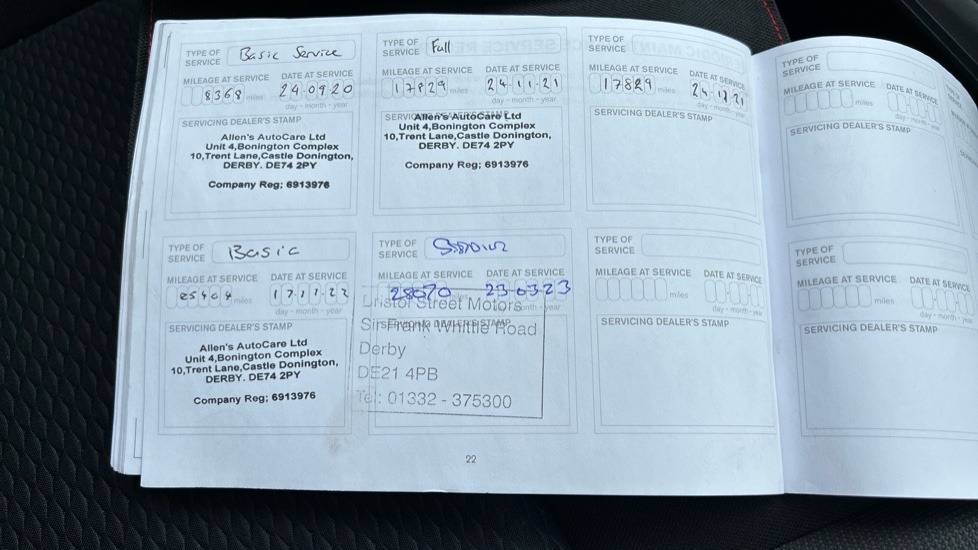 TYPE OF SERVICE Basic Service
MILEAGE AT SERVICE DATE AT SERVICE
8368 miles 24.09.20
day - month - year
SERVICING DEALER'S STAMP
Allen's AutoCare Ltd
Unit 4,Bonington Complex
10,Trent Lane,Castle Donington,
DERBY. DE74 2PY
Company Reg; 6913976
TYPE OF SERVICE Full
MILEAGE AT SERVICE DATE AT SERVICE
17829 miles 24.11.21
day - month - year
SERVICING DEALER'S STAMP
Allen's AutoCare Ltd
Unit 4,Bonington Complex
10,Trent Lane,Castle Donington,
DERBY. DE74 2PY
Company Reg; 6913976
TYPE OF SERVICE
MILEAGE AT SERVICE DATE AT SERVICE
17829 miles 24.11.21
day - month - year
SERVICING DEALER'S STAMP
TYPE OF SERVICE
MILEAGE AT SERVICE DATE AT SERVICE
miles
day - month - year
SERVICING DEALER'S STAMP
TYPE OF SERVICE Basic
MILEAGE AT SERVICE DATE AT SERVICE
miles 17.11.22
day - month - year
SERVICING DEALER'S STAMP
Allen's AutoCare Ltd
Unit 4,Bonington Complex
10,Trent Lane,Castle Donington,
DERBY. DE74 2PY
Company Reg; 6913976
TYPE OF SERVICE
MILEAGE AT SERVICE DATE AT SERVICE
28070 23-03-23
month - year
SERVICING DEALER'S STAMP
Bristol Street Motors
Sir Frank Whittle Road
Derby
DE21 4PB
Tel: 01332 - 375300
TYPE OF SERVICE
MILEAGE AT SERVICE DATE AT SERVICE
miles
day - month - year
SERVICING DEALER'S STAMP
TYPE OF SERVICE
MILEAGE AT SERVICE DATE AT SERVICE
miles
day - month - year
SERVICING DEALER'S STAMP
22